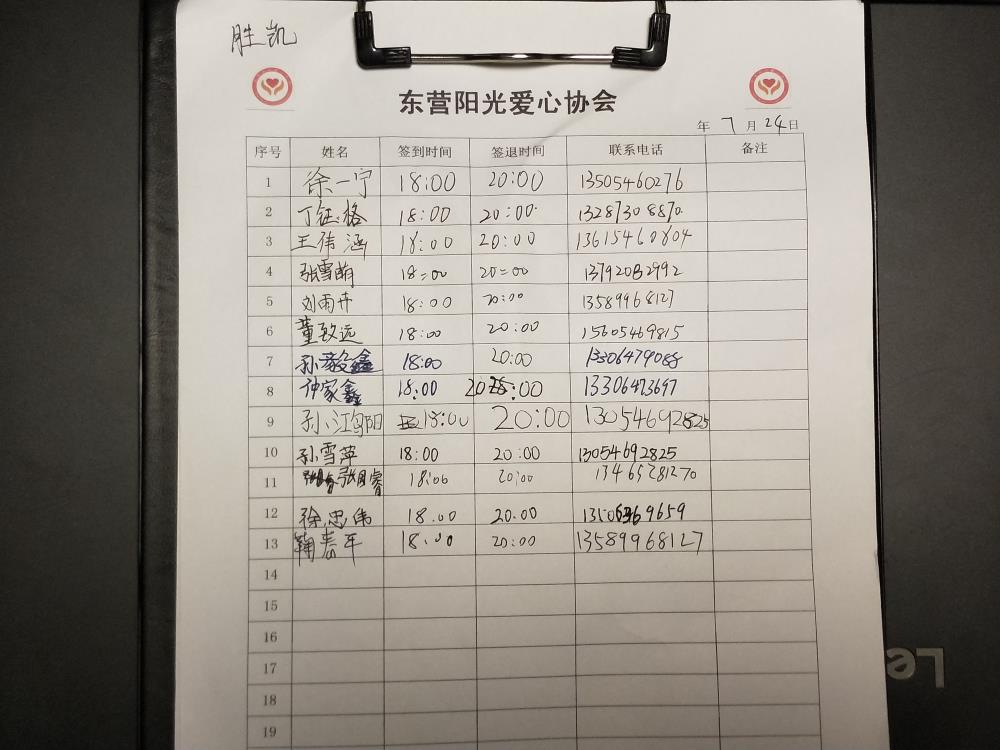 胜凯
东营阳光爱心协会
年 7 月 24 日
序号 姓名 签到时间 签退时间 联系电话 备注
1 徐一宁 18:00 20:00 13505460276
2 丁钰格 18:00 20:00 13287308870
3 王伟涵 18:00 20:00 13615460804
4 张雪萌 18:00 20:00 13792082992
5 刘雨卉 18:00 20:00 13589968127
6 董致远 18:00 20:00 15605469815
7 孙毅鑫 18:00 20:00 13306479088
8 仲家鑫 18:00 20:00 13306473697
9 孙江鸣阳 18:00 20:00 13054692825
10 孙雪萍 18:00 20:00 13054692825
11 18:00 20:00 13465281270
12 徐忠伟 18.00 20.00
13 鞠春军 18:00 20:00 13589968127
14
15
16
17
18
19
Le